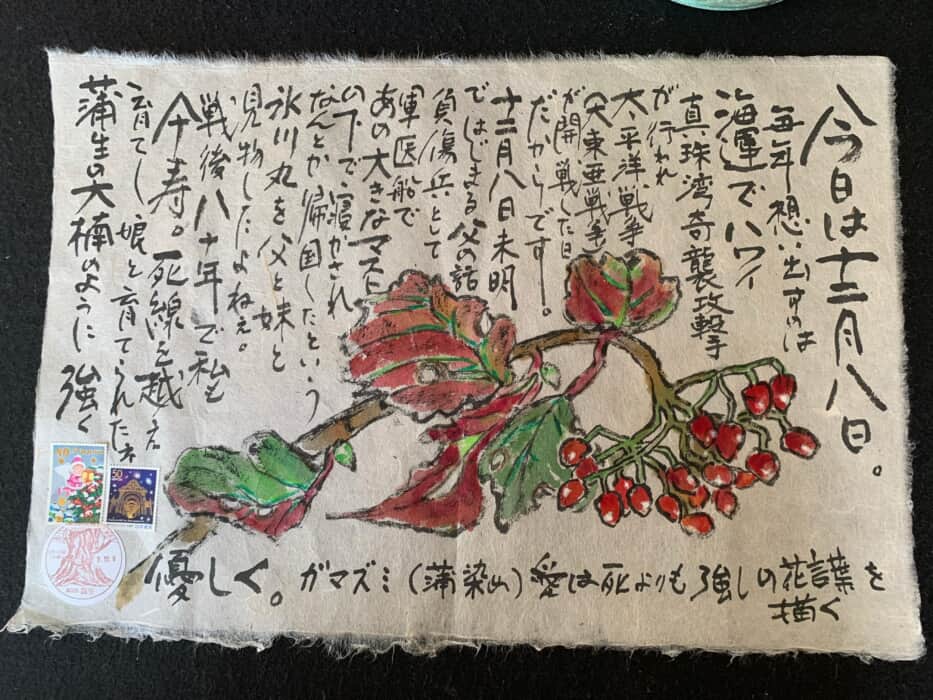 今日は十二月八日。
毎年想い出すのは
海運でハワイ
真珠湾奇襲攻撃
が行われ
太平洋戦争
(大東亜戦争)
が開戦した日
だからです。
十二月八日未明
ではじまる父の話
負傷兵として
軍医船で
あの大きなマスト
の下で寝かされ
なんとか帰国したという
氷川丸を父と妹と
見物したよねぇ。
戦後八十年で私も
傘寿。死線を越え
育てし娘と育てられた
蒲生の大楠のように強く
優しく。
ガマズミ(蒲染)愛は死よりも強しの花言葉を
描く
50
50